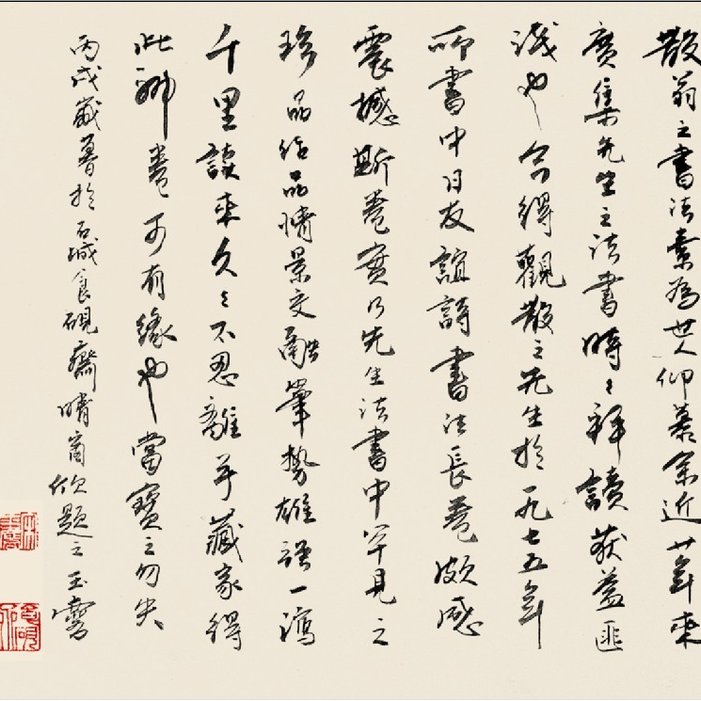 散翁之書法素為世人仰慕余近廿年來
廣集先生之法書時〻拜讀获益匪
淺也今得觀散之先生於一九七五年
所書中日友誼詩書法長卷頗感
震撼斯卷實乃先生法書中罕見之
珍品結品情景交融筆勢雄強一瀉
千里讀來久〻不忍離手藏家得
此卷可有缘也當寶之勿失
丙戌歲暮於石城食硯齋晴窗欣題之玉